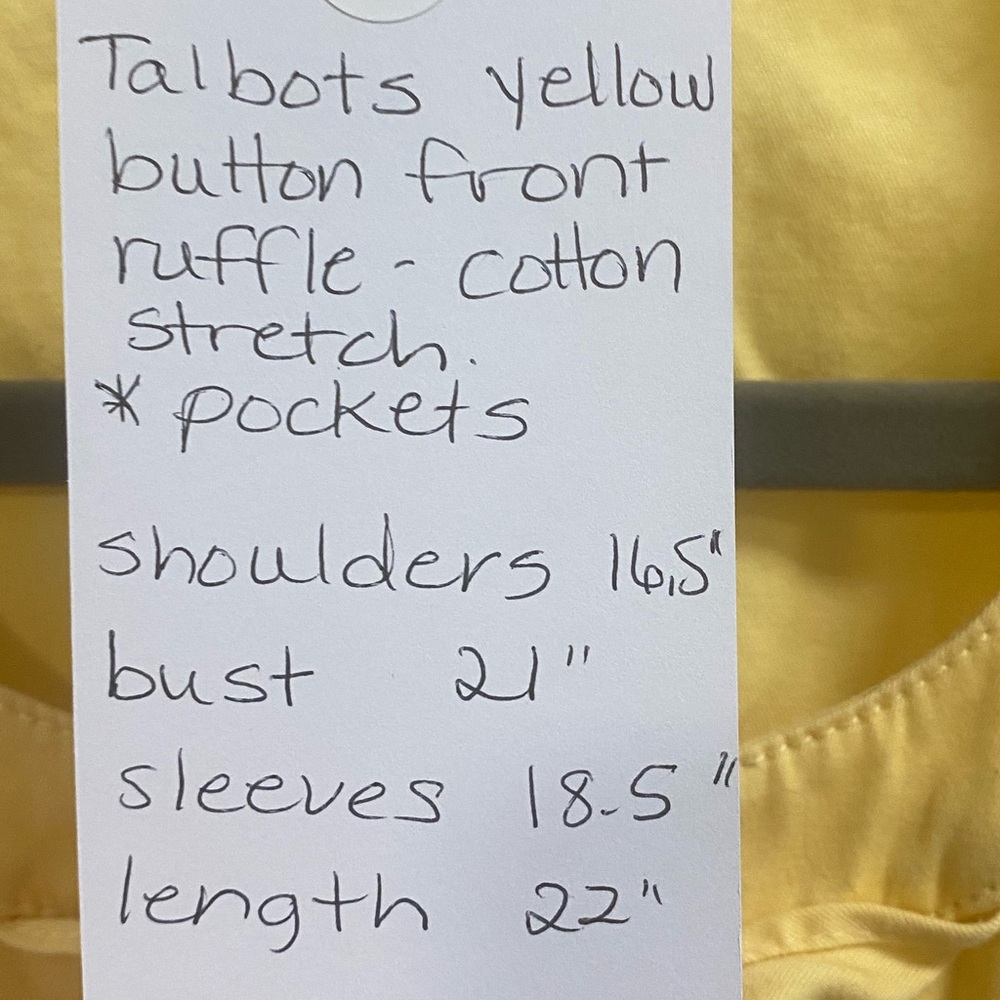 Talbots yellow
button front
ruffle - cotton
stretch.
* pockets
shoulders 16.5"
bust 21"
sleeves 18.5"
length 22"